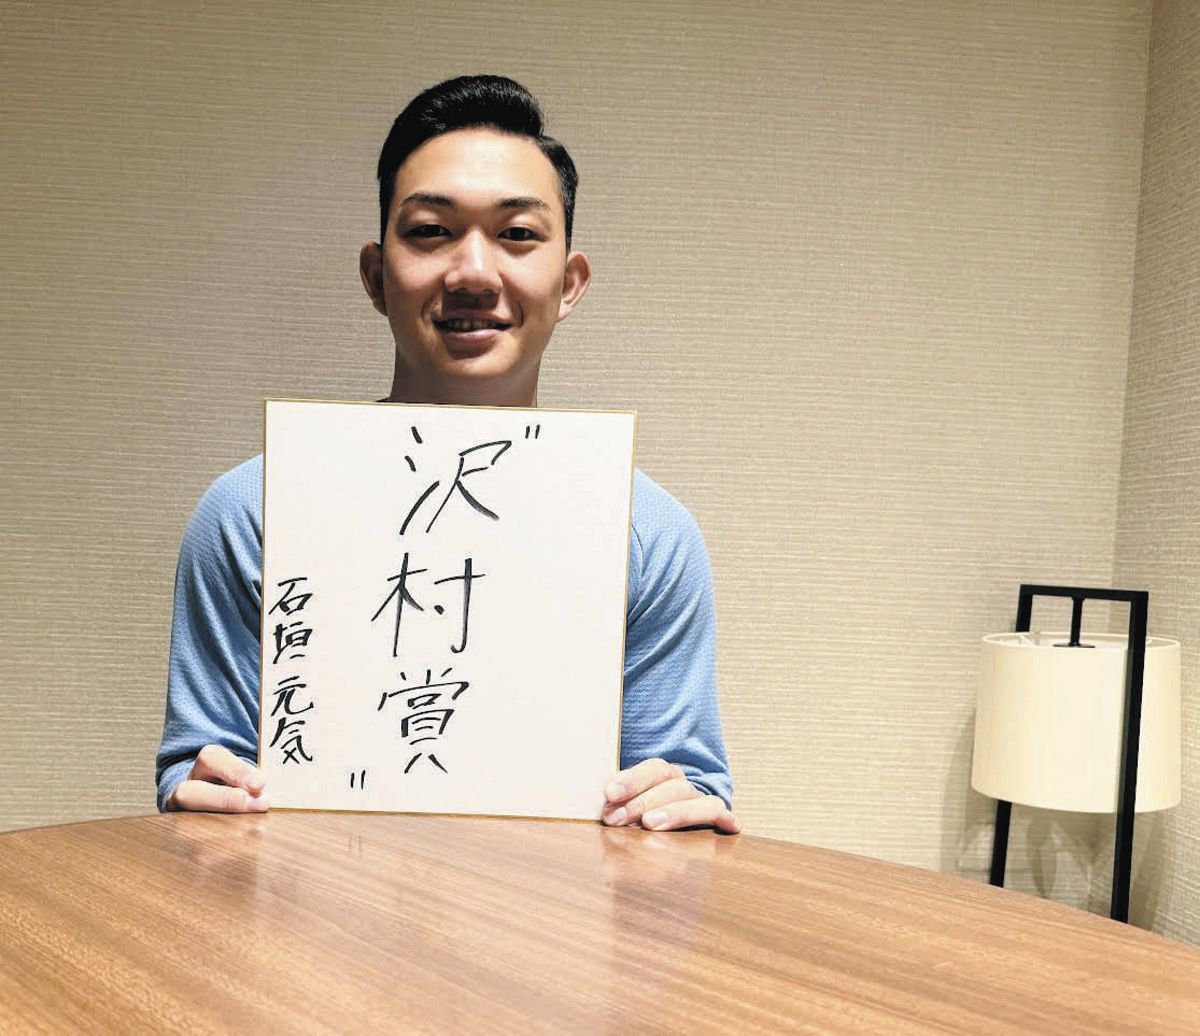 "沢村賞"
石垣元気